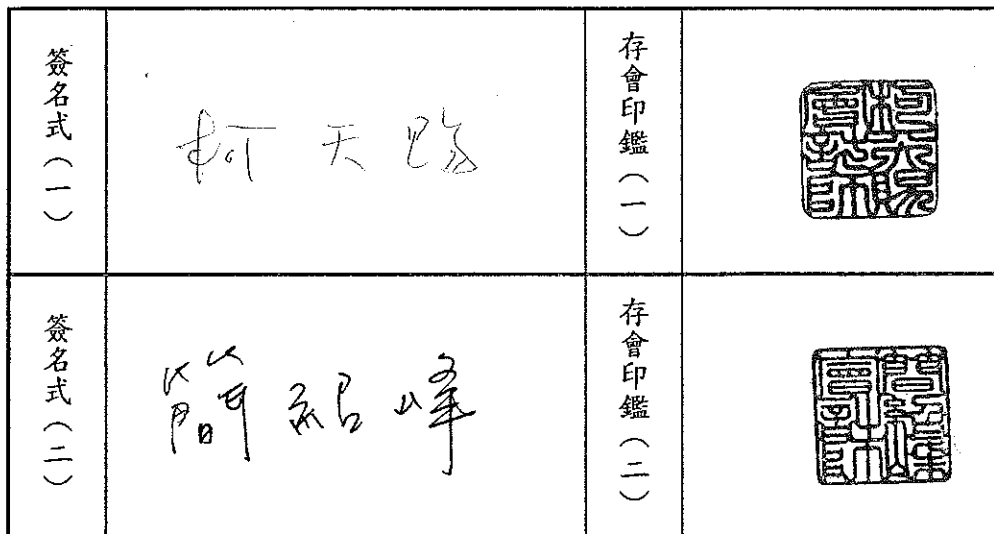 簽名式（一）
柯天賜
存會印鑑（一）
柯天賜
會計師
簽名式（二）
簡紹峰
存會印鑑（二）